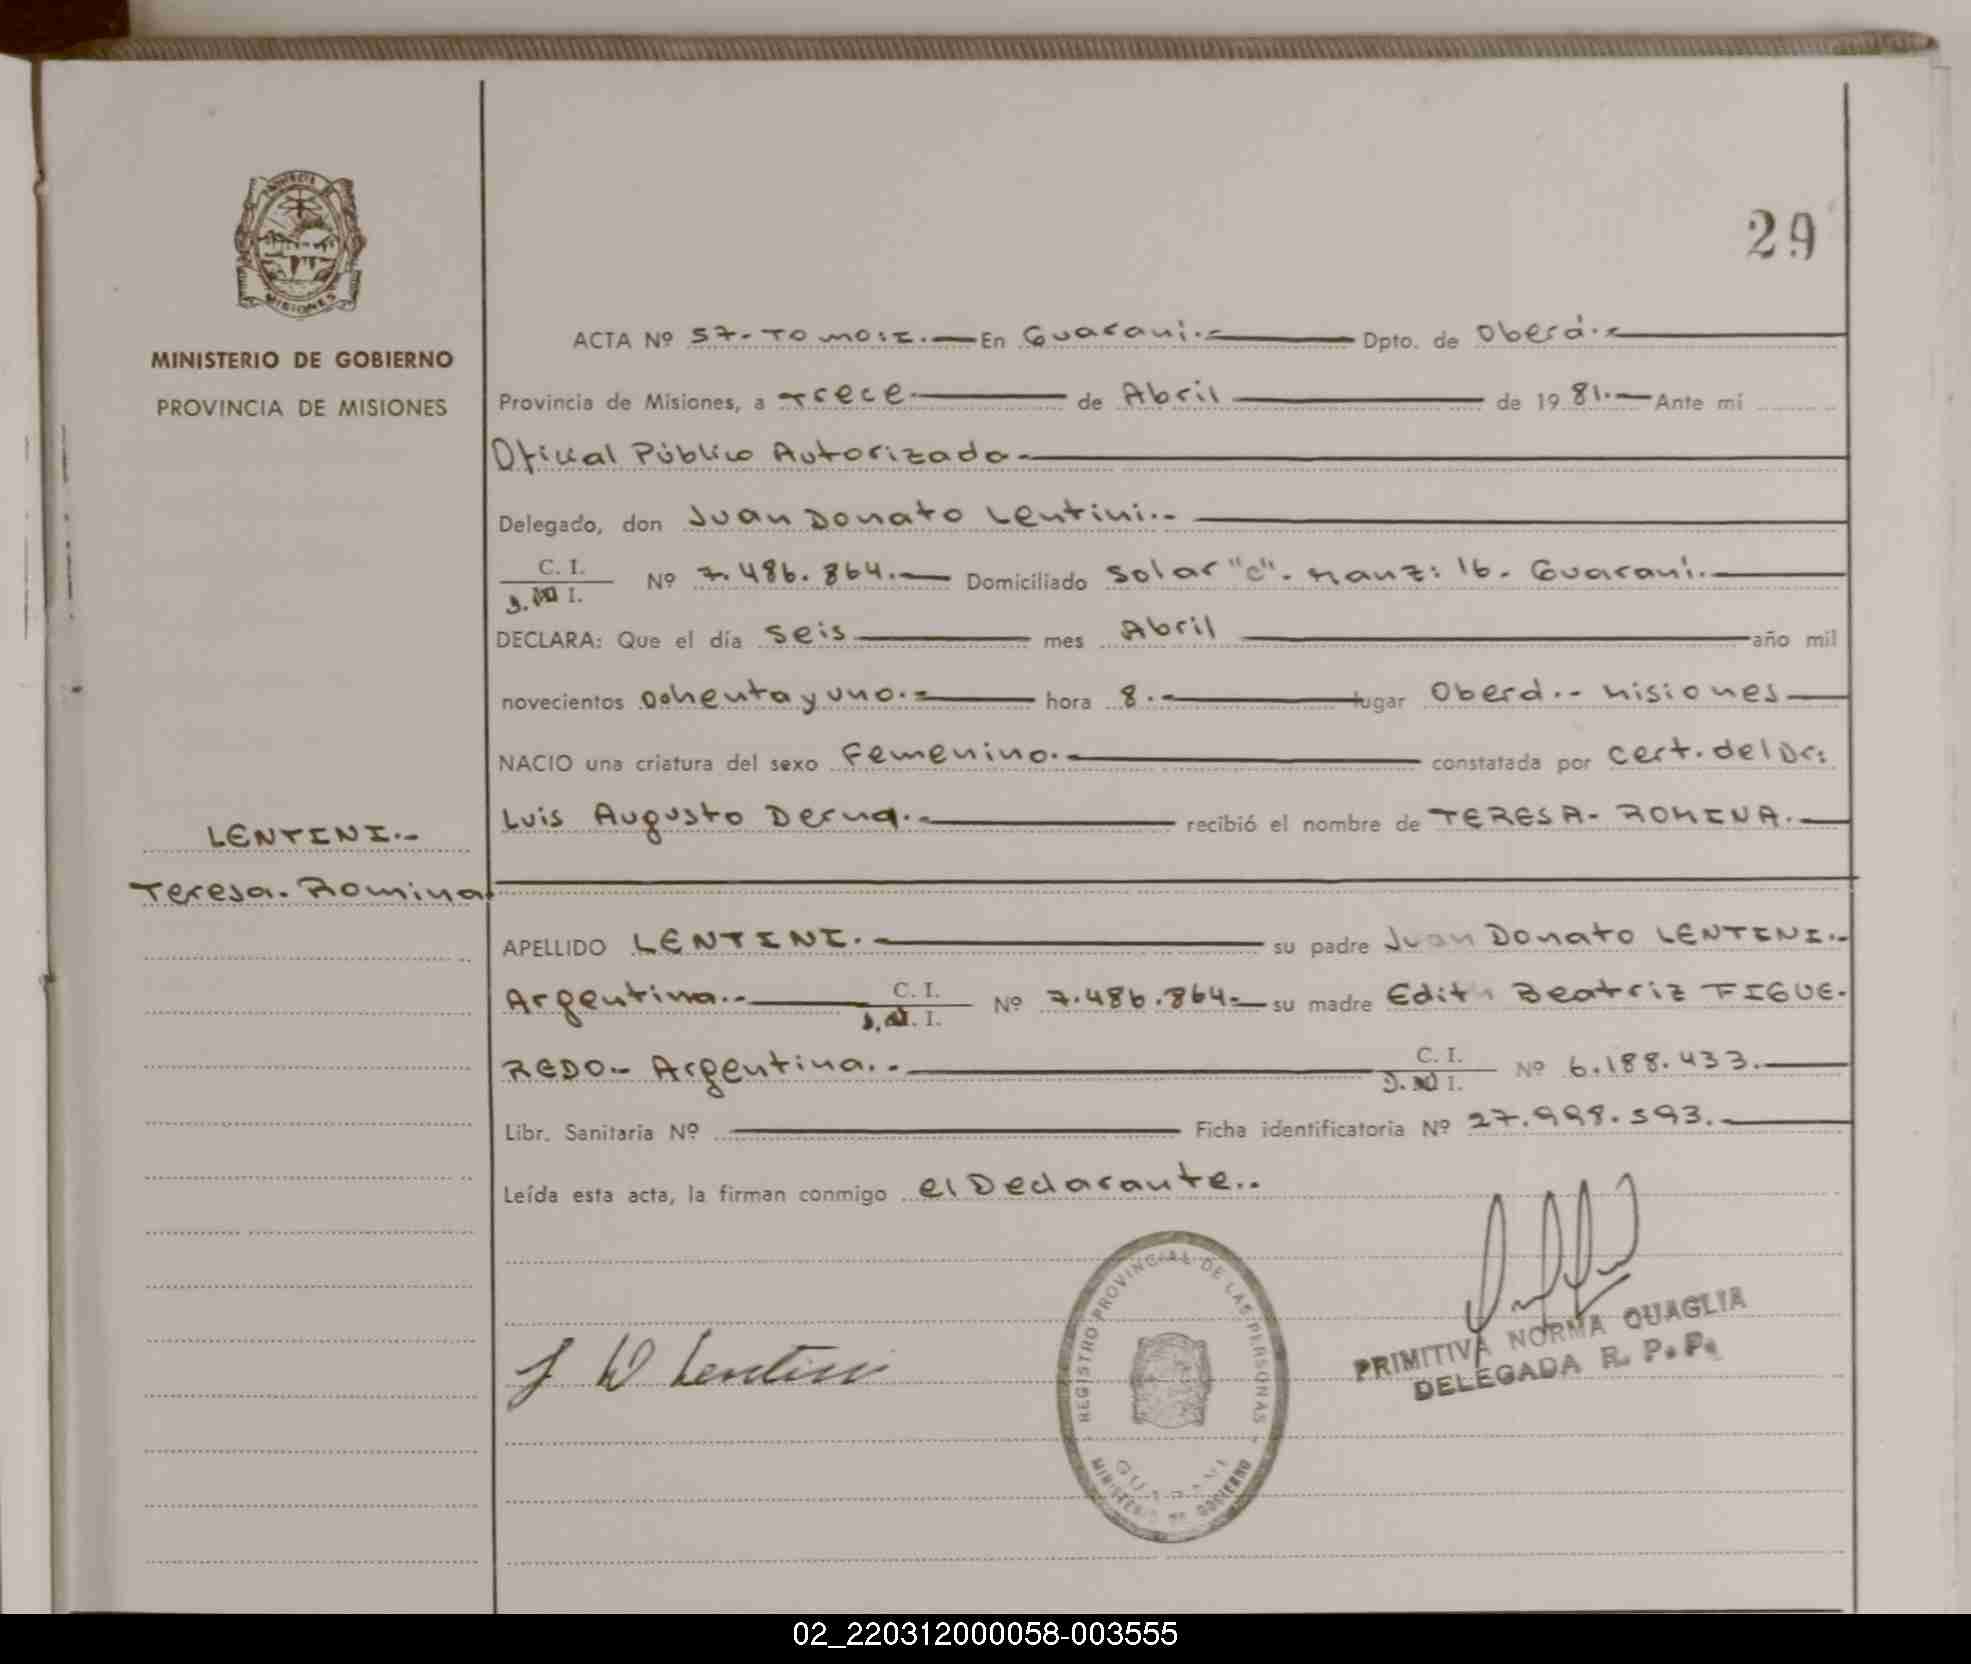 PROVINCIA DE
MISIONES
MINISTERIO DE GOBIERNO
PROVINCIA DE MISIONES
29
ACTA Nº 57.- TOMO: I.- En Guarani.- Dpto. de Oberá.-
Provincia de Misiones, a Trece de Abril de 19 81.- Ante mí
Oficial Público Autorizado-
Delegado, don Juan Donato Lentini.-
C. I.
Nº 7.486.864.- Domiciliado Solar "C". Manz: 16. Guarani.-
D. I.
DECLARA: Que el día Seis mes Abril año mil
novecientos Ochenta y uno.- hora 8.- lugar Oberá.- Misiones
NACIO una criatura del sexo Femenino.- constatada por Cert. del Dr:
Luis Augusto Derna.- recibió el nombre de TERESA- ROMINA.-
LENTINI.-
Teresa. Romina
APELLIDO LENTINI.- su padre Juan Donato LENTINI.-
Argentina.- C. I. Nº 7.486.864- su madre Edith Beatriz FIGUE-
D. I.
REDO.- Argentina.- C. I. Nº 6.188.433.-
D. I.
Libr. Sanitaria Nº Ficha identificatoria Nº 27.998.593.-
Leída esta acta, la firman conmigo el Declarante.-
J D Lentini
REGISTRO PROVINCIAL DE LAS PERSONAS
GUARANI
MINISTERIO DE GOBIERNO
PRIMITIVA NORMA QUAGLIA
DELEGADA R. P. P.
02_220312000058-003555